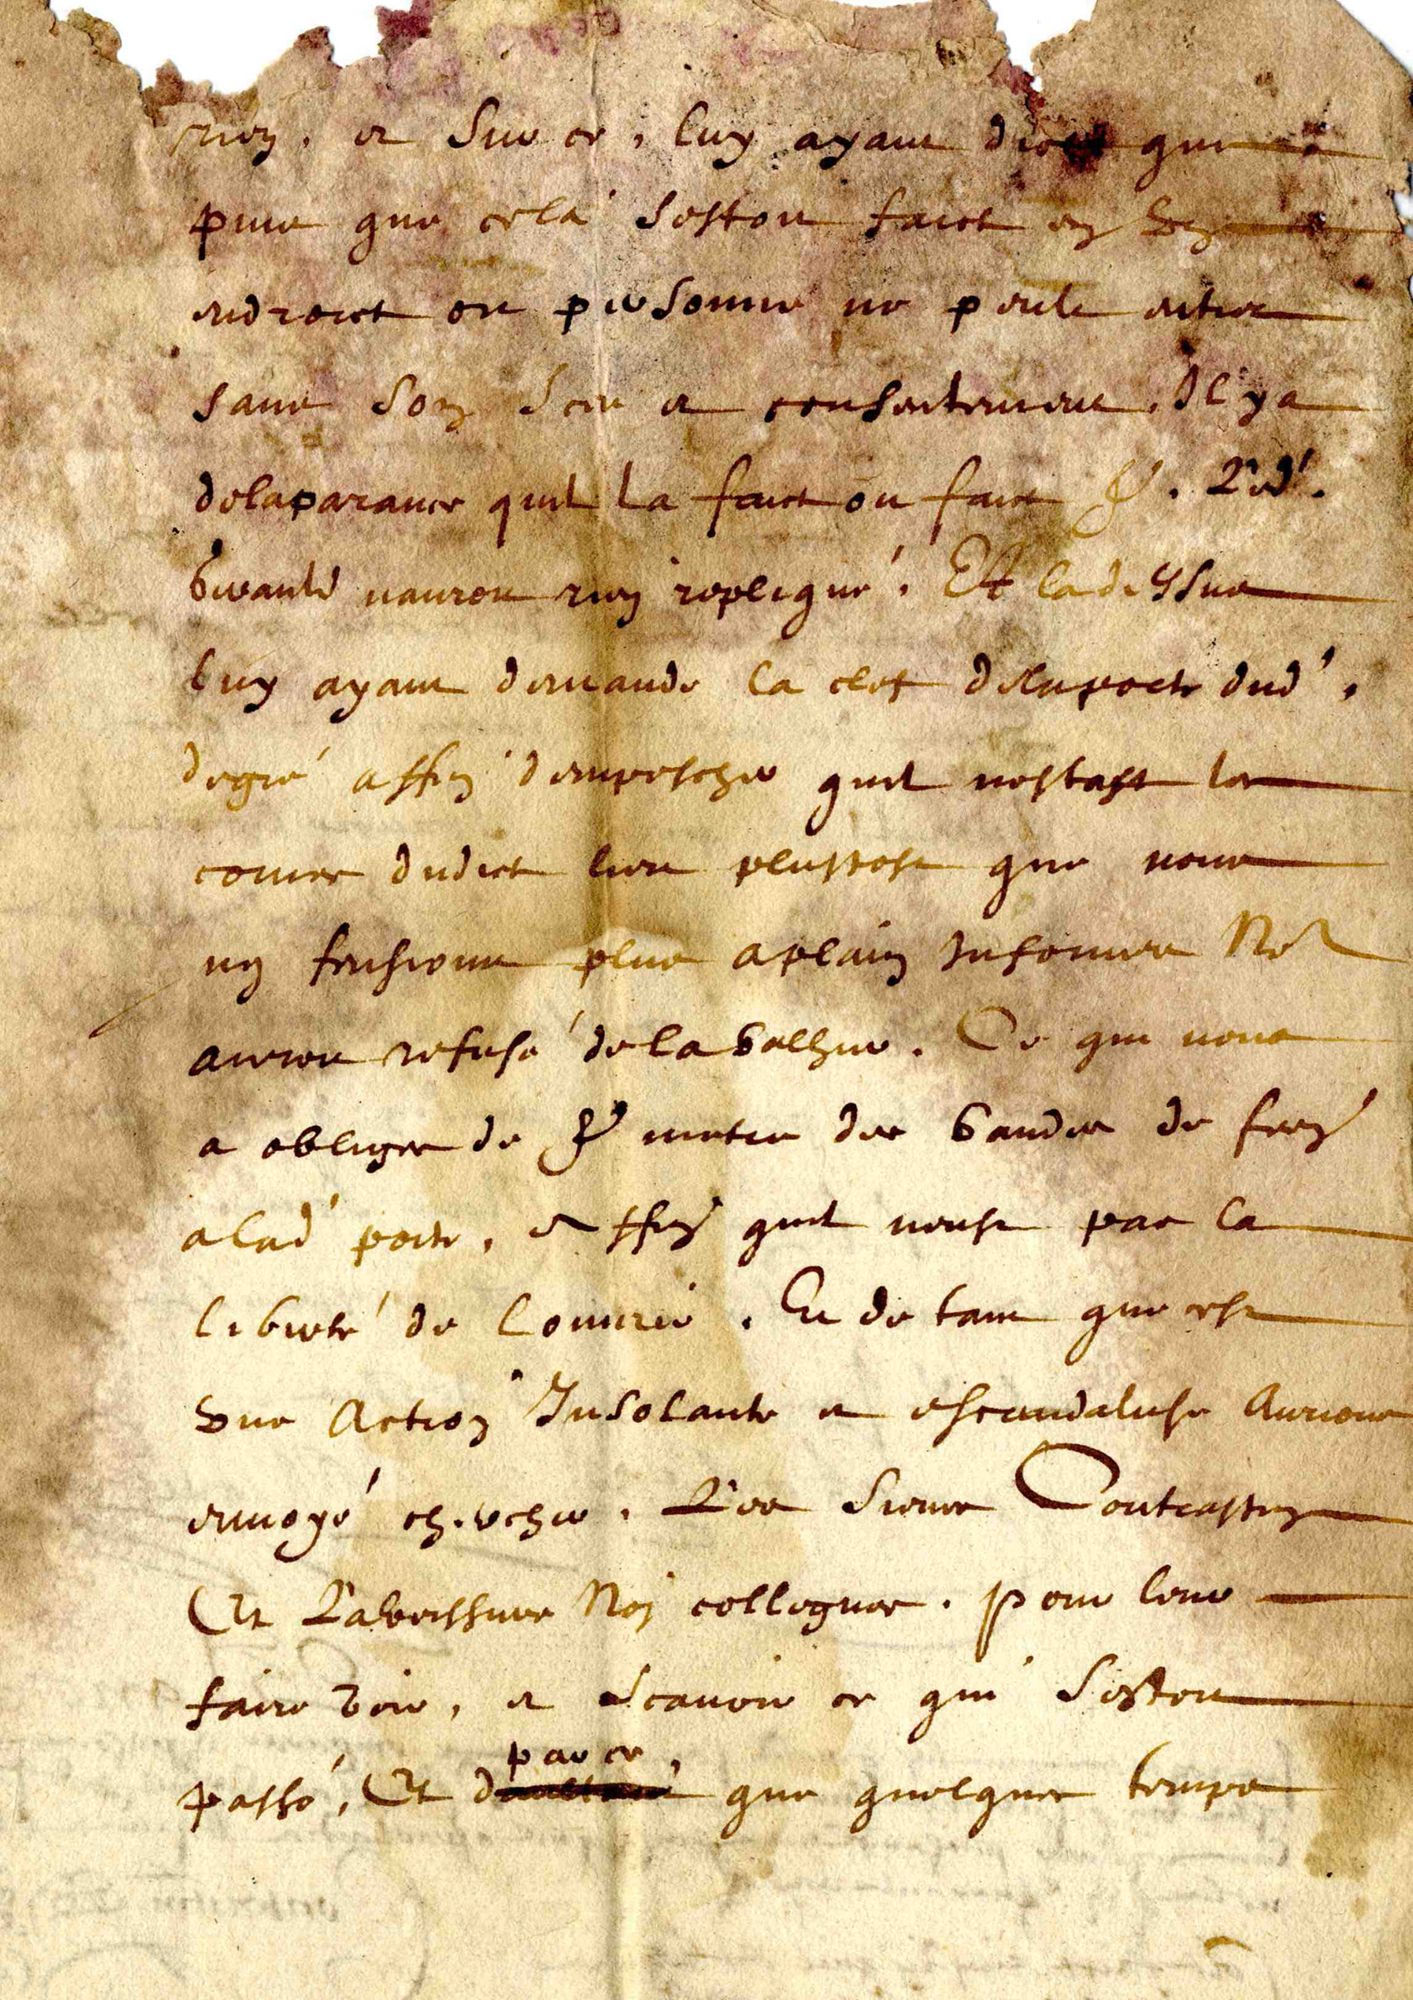 rien, et sur ce, luy ayant dict que
puis que cela sestoit faict en Un
endroict ou personne ne peult entrer
sans son sceu et consentement. Il y a
delaparance quil La faict ou faict
naurois rien replique. Et ladessus
luy ayant demande la clef delaporte dud.
degré affin dempescher quil nostast les
dudict lieu plustost que nous
ny feussions plus aplain Informes Nos
auroit refusé de la balher. Ce qui nous
a obliger de metre des bandes de
alad. porte, affin quil neust pas la
liberté de louurir. Et de tant que cest
une Action Insolante et escandaleuse Aurions
enuoyé chercher. Les Sieurs
Et Nos collegues. pour leur
faire voir, et scauoir ce qui sestoit
passé, Et par ce que quelques temps